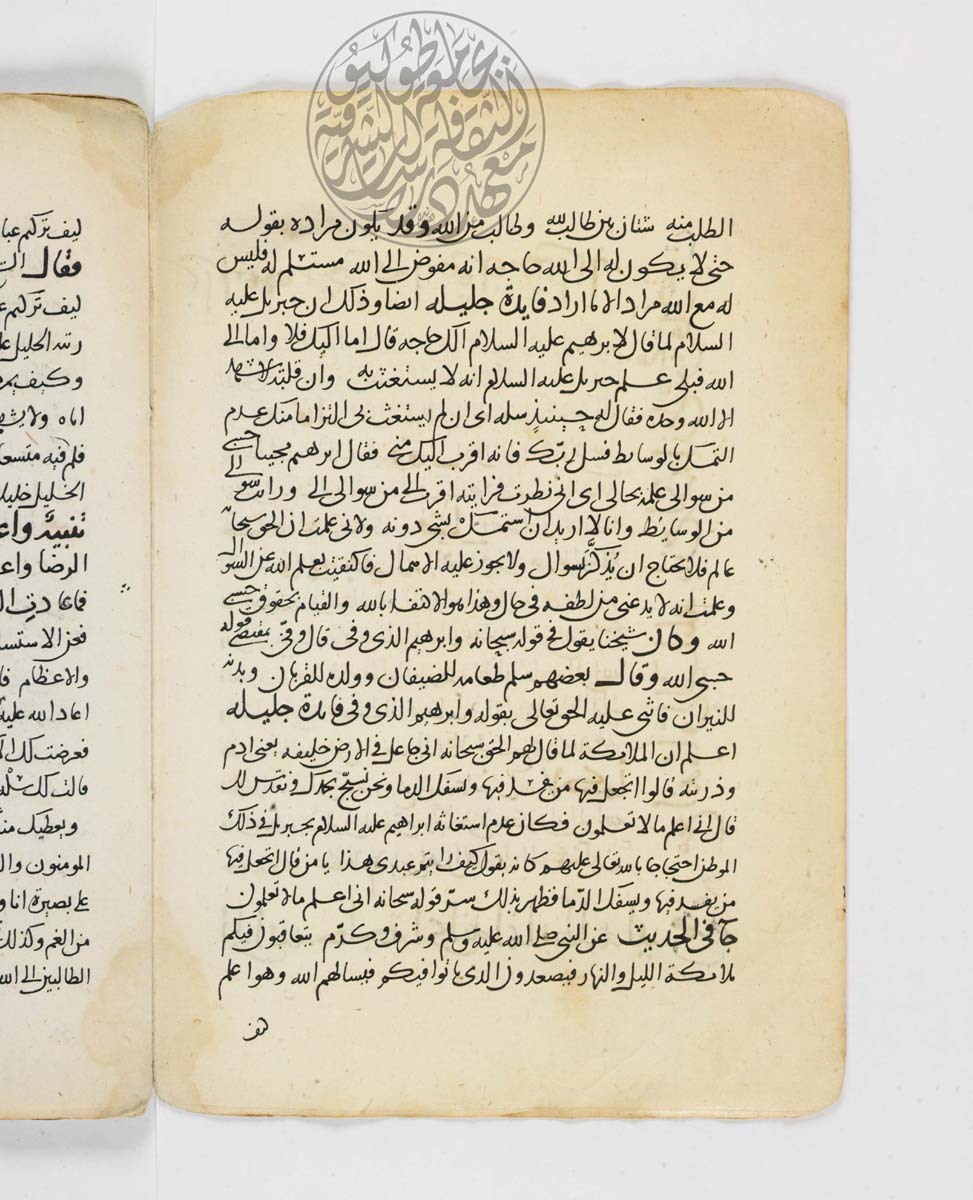 الطلب منه شتان بين طالب لله وطالب من الله وقد يكون مراده بقوله
حتى لا يكون له الى الله حاجه انه مفوض الى الله مستسلم له فليس
له مع الله مراد الا ما اراد فايدة جليله ايضا وذلك ان جبريل عليه
السلام لما قال لابرهيم عليه السلام الك حاجه قال اما اليك فلا واما الى
الله فبلى علم جبريل عليه السلام انه لا يستغيث به وان قلبه لا يشهد
الا الله وحده فقال له حينيذ سله اى ان لم تستغث بى التزاما منك عدم
التمسك بالوسايط فسل ربك فانه اقرب اليك منى فقال ابرهيم مجيبا حسبى
من سوالى علمه بحالى اى انى نظرت فرايته اقرب الى من سوالى الى ورايت سوالى
من الوسايط وانا لا اريد ان استمسك بشى دونه ولانى علمت ان الحق سبحانه
عالم فلا يحتاج ان يُذكَّر بسوال ولا يجوز عليه الاهمال فاكتفيت بعلم الله عن السوال
وعلمت انه لا يدعنى من لطفه فى حال وهذا هو الاكتفا بالله والقيام بحقوق حسبى
الله وكان شيخنا يقول فى قوله سبحانه وابرهيم الذى وفى قال وفّى بمقتضى قوله
حسبى الله وقال بعضهم سلم طعامه للضيفان وولده للقربان وبدنه
للنيران فاثنى عليه الحق تعالى بقوله وابرهيم الذى وفى فايدة جليله
اعلم ان الملايكة لما قال لهم الحق سبحانه انى جاعل فى الارض خليفه يعنى ادم
وذريته قالوا اتجعل فيها من يفسد فيها ويسفك الدما ونحن نسبّح بحمدك ونقدس لك
قال انى اعلم ما لا تعلمون فكان عدم استغاثه ابراهيم عليه السلام بجبريل فى ذلك
الموطن احتجاجا بالله تعالى عليهم كانه يقول كيف رايتم عبدى هذا يا من قال اتجعل فيها
من يفسد فيها ويسفك الدّما فظهر بذلك سرّ قوله سبحانه انى اعلم ما لا تعلمون
جا فى الحديث عن النبى صلى الله عليه وسلم وشرف وكرّم يتعاقبون فيكم
ملايكة الليل والنهار فيصعدون الذى باتوا فيكم فيسالهم الله وهو اعلم
ليف تركتم عبا
فقال
ليف تركتم
رتبه الخليل
وكيف
اياه ولا
فلم فيه متسعا
الخليل خليلا
تنبيه واع
الرضا واع
فاعادت
فعن الاستس
والاعظام
اعاد الله عليه
فعرضت لك
قالت لك
ويعطيك
المومنون وال
على بصيرة انا و
من الغم وكذلك
الطالبين الى الله